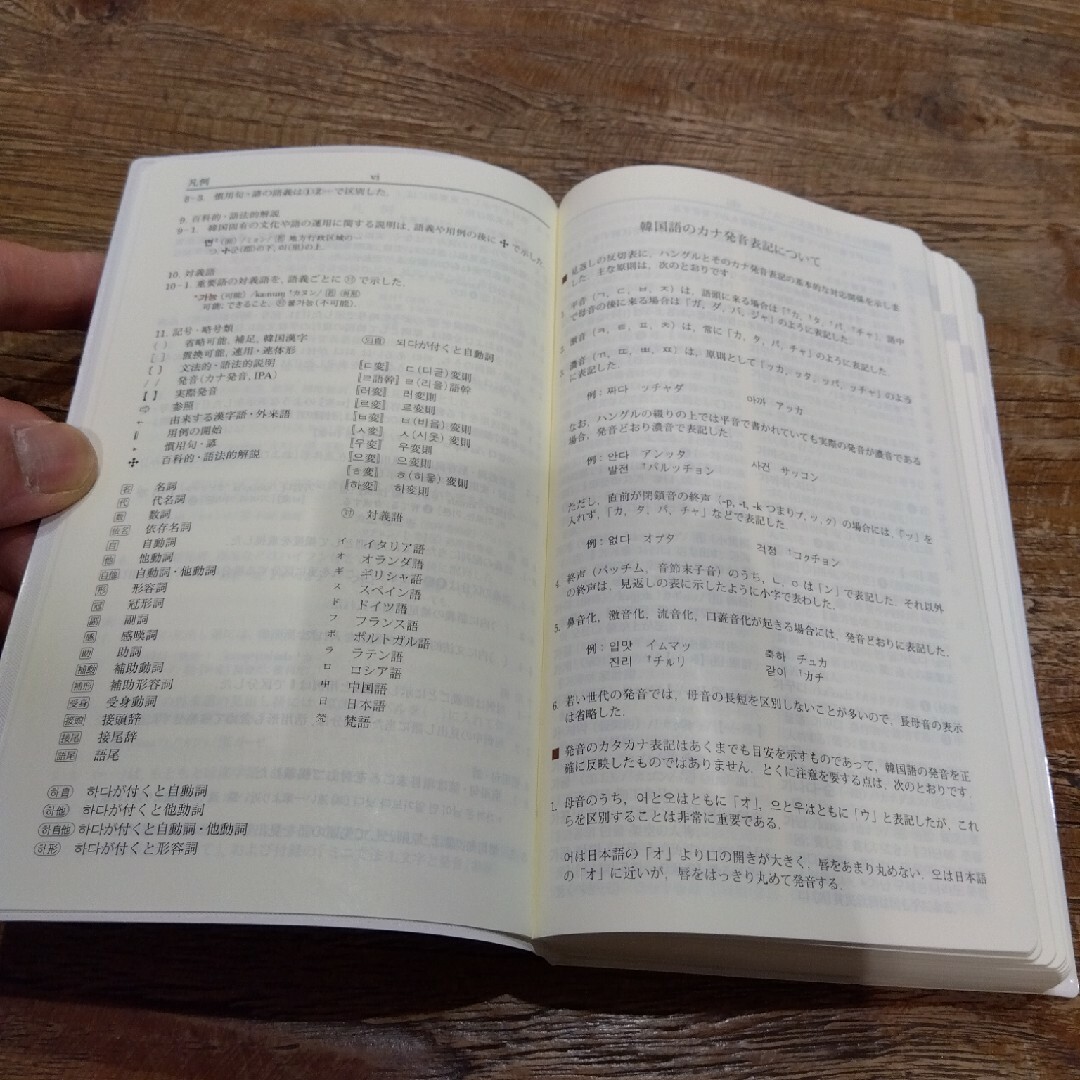 凡例
vi
8-3. 慣用句・諺の語義は①②…で区別した.
9. 百科的・語法的解説
9-1. 韓国固有の文化や語の運用に関する説明は, 語義や用例の後に ✣ で示した
地方行政区域の一
10. 対義語
10-1. 重要語の対義語を, 語義ごとに ㊥ で示した.
*가능 (可能) /kanɯŋ *カヌン/
可能, できること. 불가능 (不可能).
11. 記号・略号類
( ) 省略可能, 補足, 韓国漢字
〔 〕 置換可能, 連用・連体形
[ ] 文法的・語法的説明
/ / 発音 (カナ発音, IPA)
【 】 実際発音
⇨ 参照
← 由来する漢字語・外来語
用例の開始
• 慣用句・諺
✣ 百科的・語法的解説
名 名詞
代 代名詞
数 数詞
依名 依存名詞
自 自動詞
他 他動詞
自他 自動詞・他動詞
形 形容詞
冠 冠形詞
副 副詞
感 感嘆詞
助 助詞
補動 補助動詞
補形 補助形容詞
受身 受身動詞
接頭 接頭辞
接尾 接尾辞
語尾 語尾
하自 하다が付くと自動詞
하他 하다が付くと他動詞
하自他 하다が付くと自動詞・他動詞
하形 하다が付くと形容詞
되自 되다が付くと自動詞
[ㄷ変] ㄷ (디귿) 変則
[ㄹ語幹] ㄹ (리을) 語幹
[러変] 러変則
[르変] 르変則
[ㅂ変] ㅂ (비읍) 変則
[ㅅ変] ㅅ (시옷) 変則
[우変] 우変則
[으変] 으変則
[ㅎ変] ㅎ (히읗) 変則
[하変] 하変則
対 対義語
イ イタリア語
オ オランダ語
ギ ギリシャ語
ス スペイン語
ド ドイツ語
フ フランス語
ポ ポルトガル語
ラ ラテン語
ロ ロシア語
中 中国語
日 日本語
梵 梵語
韓国語のカナ発音表記について
■ 見返しの反切表に, ハングルとそのカナ発音表記の基本的な対応関係を示しま
した. 主な原則は, 次のとおりです.
平音 (ㄱ, ㄷ, ㅂ, ㅈ) は, 語頭に来る場合は「*カ, *タ, *パ, *チャ」, 語中
で母音の後に来る場合は「ガ, ダ, バ, ジャ」のように表記した.
激音 (ㅋ, ㅌ, ㅍ, ㅊ) は, 常に「カ, タ, パ, チャ」のように表記した
濃音 (ㄲ, ㄸ, ㅃ, ㅉ) は, 原則として「ッカ, ッタ, ッパ, ッチャ」のよう
に表記した.
例 : 짜다 ッチャダ 아까 アッカ
なお, ハングルの綴りの上では平音で書かれていても実際の発音が濃音である
場合, 発音どおり濃音で表記した
例 : 안다 アンッタ 사건 サッコン
발전 *パルッチョン
ただし, 直前が閉鎖音の終声 (-p, -t, -k つまりプ, ッ, ク) の場合には, 「ッ」を
入れず, 「カ, タ, パ, チャ」などで表記した
例 : 없다 オプタ 걱정 *コクチョン
4. 終声 (パッチム, 音節末子音) のうち, ㄴ, ㅇ は「ン」で表記した. それ以外
の終声は, 見返しの表に示したように小字で表わした.
5. 鼻音化, 激音化, 流音化, 口蓋音化が起きる場合には, 発音どおりに表記した.
例 : 입맛 イムマッ 축하 チュカ
진리 *チルリ 같이 *カチ
6. 若い世代の発音では, 母音の長短を区別しないことが多いので, 長母音の表示
は省略した.
■ 発音のカタカナ表記はあくまでも目安を示すものであって, 韓国語の発音を正
確に反映したものではありません. とくに注意を要する点は, 次のとおりです.
1. 母音のうち, 어と오はともに「オ」, 으と우はともに「ウ」と表記したが, これ
らを区別することは非常に重要である.
어は日本語の「オ」より口の開きが大きく, 唇をあまり丸めない. 오は日本語
の「オ」に近いが, 唇をはっきり丸めて発音する.